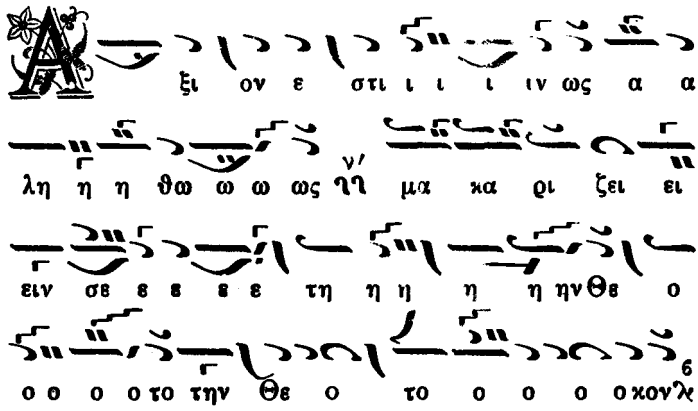 Α ξι ον ε στι ι ι ι ιν ως α α
λη η η θω ω ω ως ν′ μα κα ρι ζει ει
ειν σε ε ε ε ε τη η η η η ην Θε ο
ο ο ο ο το την Θε ο το ο ο ο ο κον